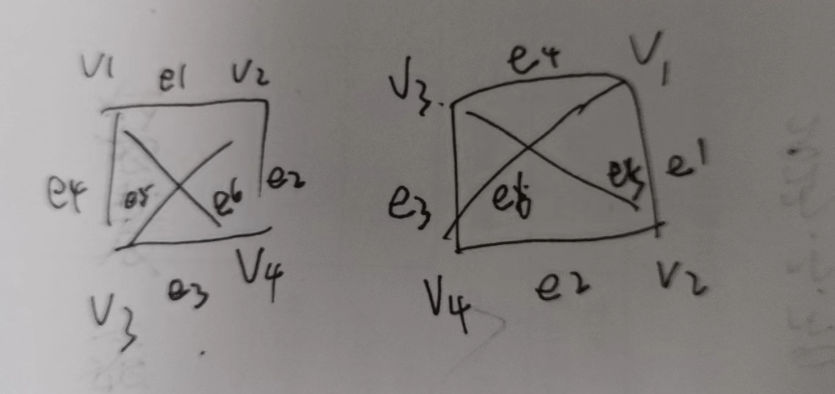 V1 e1 V2
e4 e5 e6 e2
V3 e3 V4
V3 e4 V1
e3 e6 e5 e1
V4 e2 V2